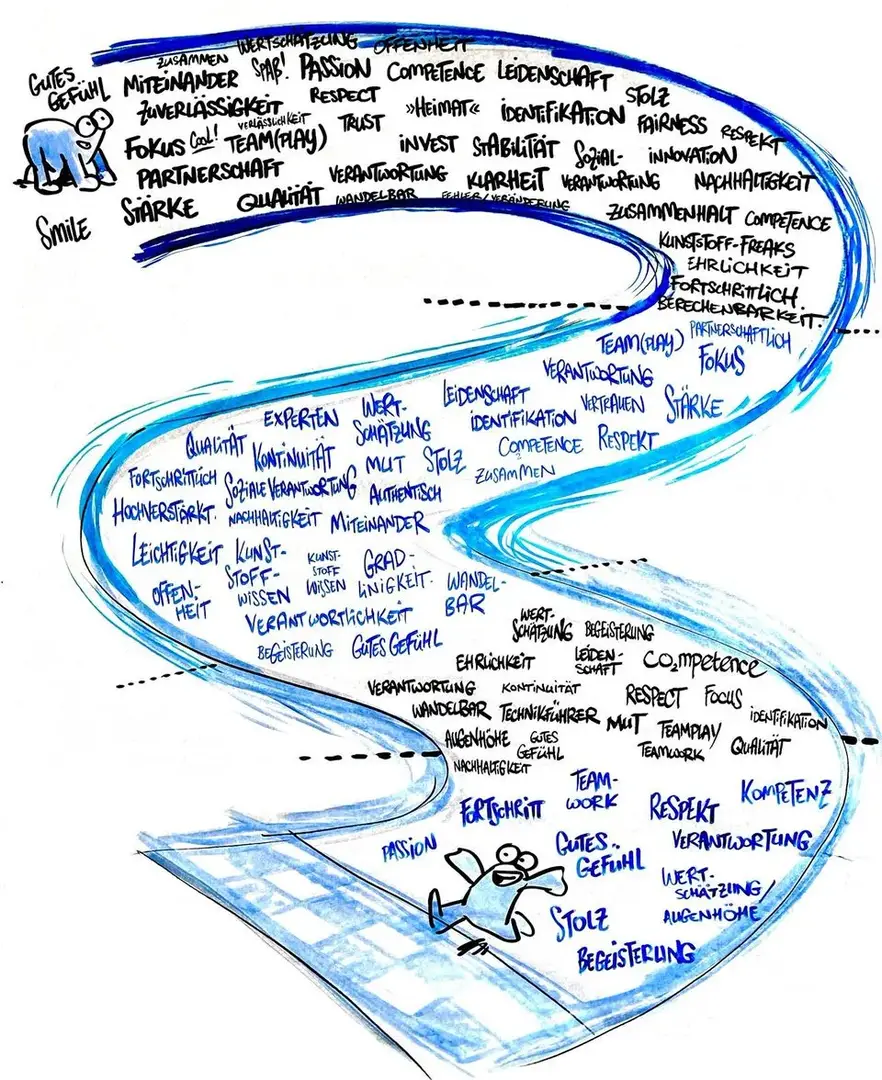 WERTSCHÄTZUNG OFFENHEIT
ZUSAMMEN
GUTES
GEFÜHL
MITEINANDER SPAß! PASSION COMPETENCE LEIDENSCHAFT
STOLZ
ZUVERLÄSSIGKEIT RESPECT »HEIMAT« IDENTIFIKATION FAIRNESS RESPEKT
VERLÄSSLICHKEIT
FOKUS Cool! TEAM(PLAY) TRUST INVEST STABILITÄT SOZIAL- INNOVATION
PARTNERSCHAFT VERANTWORTUNG KLARHEIT VERANTWORTUNG NACHHALTIGKEIT
Smile STÄRKE QUALITÄT WANDELBAR FEHLER/VERÄNDERUNG ZUSAMMENHALT COMPETENCE
KUNSTSTOFF-FREAKS
EHRLICHKEIT
FORTSCHRITTLICH
BERECHENBARKEIT.
TEAM(PLAY) PARTNERSCHAFTLICH
VERANTWORTUNG FOKUS
EXPERTEN WERT-
SCHÄTZUNG
LEIDENSCHAFT
IDENTIFIKATION VERTRAUEN STÄRKE
QUALITÄT KONTINUITÄT MUT STOLZ COMPETENCE RESPEKT
ZUSAMMEN
FORTSCHRITTLICH SOZIALE VERANTWORTUNG AUTHENTISCH
HOCHVERSTÄRKT. NACHHALTIGKEIT MITEINANDER
LEICHTIGKEIT KUNST-
STOFF-
WISSEN
KUNST-
STOFF
WISSEN
GRAD-
LINIGKEIT.
OFFEN-
HEIT
WANDEL-
BAR
VERANTWORTLICHKEIT
BEGEISTERUNG GUTES GEFÜHL
WERT-
SCHÄTZUNG BEGEISTERUNG
EHRLICHKEIT LEIDEN-
SCHAFT
CO₂mpetence
VERANTWORTUNG KONTINUITÄT RESPECT FOCUS
WANDELBAR TECHNIKFÜHRER MUT TEAMPLAY IDENTIFIKATION
AUGENHÖHE GUTES
GEFÜHL
TEAMWORK QUALITÄT
NACHHALTIGKEIT
FORTSCHRITT TEAM-
WORK
RESPEKT KOMPETENZ
PASSION GUTES
GEFÜHL
VERANTWORTUNG
WERT-
SCHÄTZUNG/
AUGENHÖHE
STOLZ
BEGEISTERUNG